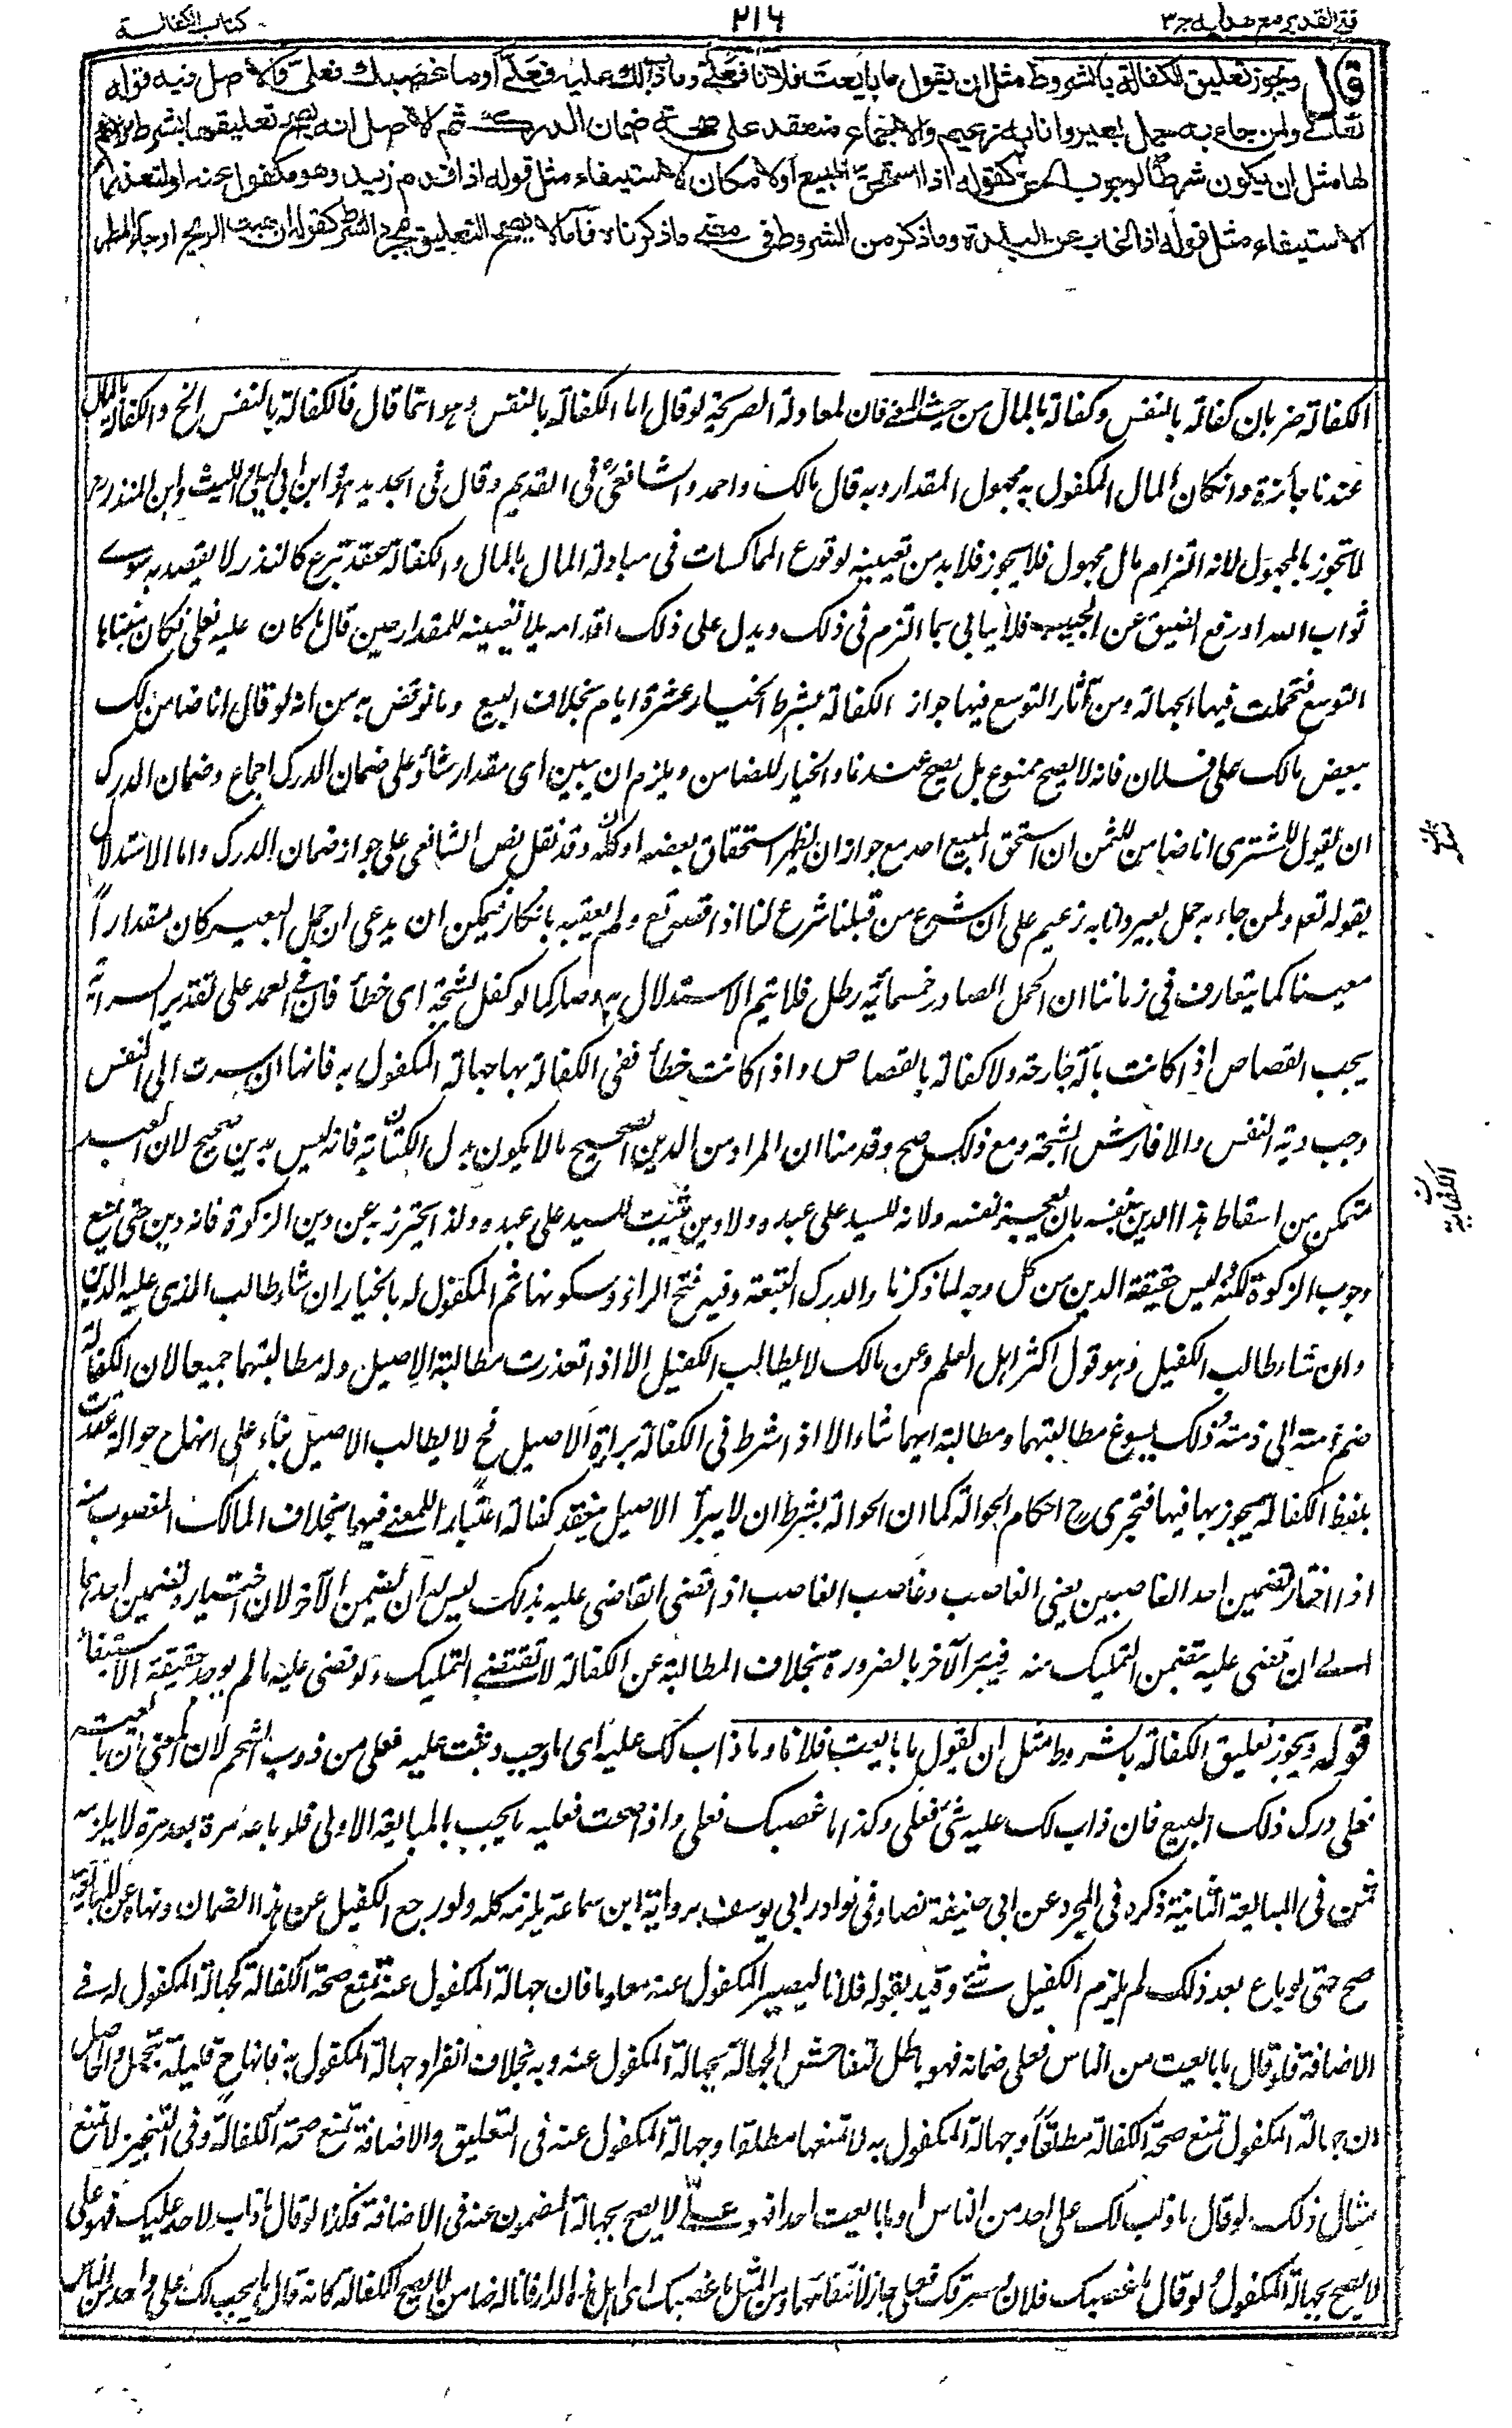 فتح القدير مع هدايه ج ٣
٢١٦
كتاب الكفالة
قال ويجوز تعليق الكفالة بالشروط مثل ان يقول ما بايعت فلانا فعلي وما ذاب لك عليه فعلي او ما غصبك فعلي والاصل فيه قوله
تعالى ولمن جاء به حمل بعير وانا به زعيم والاجماع منعقد على صحة ضمان الدرك ثم الاصل انه يصح تعليقها بشرط ملائم
لها مثل ان يكون شرطا لوجوب الحق كقوله اذا استحق المبيع او لامكان الاستيفاء مثل قوله اذا قدم زيد وهو مكفول عنه او لتعذر
الاستيفاء مثل قوله اذا غاب عن البلدة وما ذكر من الشروط في معنى ما ذكرناه فاما لا يصح التعليق بمجرد الشرط كقوله ان هبت الريح او جاء المطر
الكفالة ضربان كفالة بالنفس وكفالة بالمال من حيث المعنى فان المعادلة الصريحة لو قال اما الكفالة بالنفس وهو انما قال فالكفالة بالنفس الخ والكفالة بالمال
عندنا جائزة وان كان المال المكفول به مجهول المقدار وبه قال مالك واحمد والشافعي في القديم وقال في الجديد هو وابن ابي ليلى والليث وابن المنذر
لا تجوز بالمجهول لانه التزام مال مجهول فلا يجوز فلا بد من تعيينه لوقوع المماكسات في مبادلة المال بالمال والكفالة عقد تبرع كالنذر لا يقصد به سوى
ثواب الله او رفع الضيق عن الحبيب فلا يبالي بما التزم في ذلك ويدل على ذلك اقدامه بلا تعيينه للمقدار حين قال ما كان عليه فعلي فكان مبناها
التوسع فتحملت فيها الجهالة ومن آثار التوسع فيها جواز الكفالة بشرط الخيار عشرة ايام بخلاف البيع وما نوقض به من انه لو قال انا ضامن لك
بعض مالك على فلان فانه لا يصح ممنوع بل يصح عندنا والخيار للضامن ويلزم ان يبين اي مقدار شاء وعلى ضمان الدرك اجماع وضمان الدرك
ان يقول للمشتري انا ضامن للثمن ان استحق المبيع احد مع جواز ان يظهر استحقاق بعضه او كله وقد نقل نص الشافعي على جواز ضمان الدرك واما الاستدلال
بقوله تعم ولمن جاء به حمل بعير وانا به زعيم على ان شرع من قبلنا شرع لنا اذا قص ولم يعقبه بانكار فيمكن ان يدعى ان حمل البعير كان مقدارا
معينا كما يتعارف في زماننا ان الحمل الصادر خمسمائة رطل فلا يتم الاستدلال به وصار كما لو كفل بشجة اي خطأ فان في العمد على تقدير السراية
يجب القصاص اذا كانت بآلة جارحة ولا كفالة بالقصاص واذا كانت خطأ ففي الكفالة بها جهالة المكفول به فانها ان سرت الى النفس
وجب دية النفس والا فارش الشجة ومع ذلك صح وقدمنا ان المراد من الدين الصحيح ما لا يكون بدل الكتابة فانه ليس بدين صحيح لان العبد
متمكن من اسقاط هذا الدين بنفسه بان يعجز نفسه ولانه للسيد على عبده ولا دين يثبت للسيد على عبده ولذا يحترز به عن دين الزكوة فانه دين حتى يمنع
وجوب الزكوة لكنه ليس حقيقة الدين من كل وجه لما ذكرنا والدرك التبعة وفيه فتح الراء وسكونها ثم المكفول له بالخيار ان شاء طالب الذي عليه الدين
وان شاء طالب الكفيل وهو قول اكثر اهل العلم وعن مالك لا يطالب الكفيل الا اذا تعذرت مطالبة الاصيل وله مطالبتهما جميعا لان الكفالة
ضم ذمته الى ذمته وذلك يسوغ مطالبتهما ومطالبة ايهما شاء الا اذا شرط في الكفالة براءة الاصيل فح لا يطالب الاصيل بناء على انها ح حوالة عقدت
بلفظ الكفالة تجوز بها فيها فتجرى ح احكام الحوالة كما ان الحوالة بشرط ان لا يبرأ الاصيل ينعقد كفالة اعتبارا للمعنى فيهما بخلاف المالك المغصوب منه
اذا اختار تضمين احد الغاصبين يعني الغاصب وغاصب الغاصب اذا قضى القاضي عليه بذلك ليس له ان يضمن الآخر لان اختيار تضمين احدهما
اي ان قضى عليه يتضمن التمليك منه فيبرأ الآخر بالضرورة بخلاف المطالبة عن الكفالة لا تقتضي التمليك ولو قضى عليه ما لم يوجد حقيقة الاستيفاء
قوله ويجوز تعليق الكفالة بالشروط مثل ان يقول ما بايعت فلانا وما ذاب لك عليه اي ما وجب وثبت عليه فعلي من ذوب الشحم لان المعنى ان بايعت
فعلي درك ذلك البيع فان ذاب لك عليه شئ فعلي وكذا ما غصبك فعلي واذا صحت فعليه ما يجب بالمبايعة الاولى فلو باعه مرة بعد مرة لا يلزمه
ثمن في المبايعة الثانية ذكره في المجرد عن ابي حنيفة نصا وفي نوادر ابي يوسف برواية ابن سماعة يلزمه كله ولو رجع الكفيل عن هذا الضمان ونهاه عن المبايعة
صح حتى لو باع بعد ذلك لم يلزم الكفيل شئ وقيد بقوله فلانا ليصير المكفول عنه معلوما فان جهالة المكفول عنه تمنع صحة الكفالة كجهالة المكفول له في
الاضافة فلو قال ما بايعت من الناس فعلي ضمانه فهو باطل لتفاحش الجهالة بجهالة المكفول عنه وبه بخلاف انفراد جهالة المكفول به فانها ح قليلة تتحمل والحاصل
ان جهالة المكفول تمنع صحة الكفالة مطلقا وجهالة المكفول به لا تمنعها مطلقا وجهالة المكفول عنه في التعليق والاضافة تمنع صحة الكفالة وفي التنجيز لا تمنع
مثال ذلك لو قال ما ذاب لك على احد من الناس او ما بايعت احدا فهو علي لا يصح بجهالة المضمون عنه في الاضافة فكذا لو قال ما ذاب لاحد عليك فهو علي
لا يصح بجهالة المكفول له ولو قال ما غصبك فلان او سرقك فعلي جاز لانتفائهما ومن المثل ما غصبك اهل هذه الدار فانا له ضامن لا يصح الكفالة كانه قال ما يجب لك على واحد من الناس
الكفايات